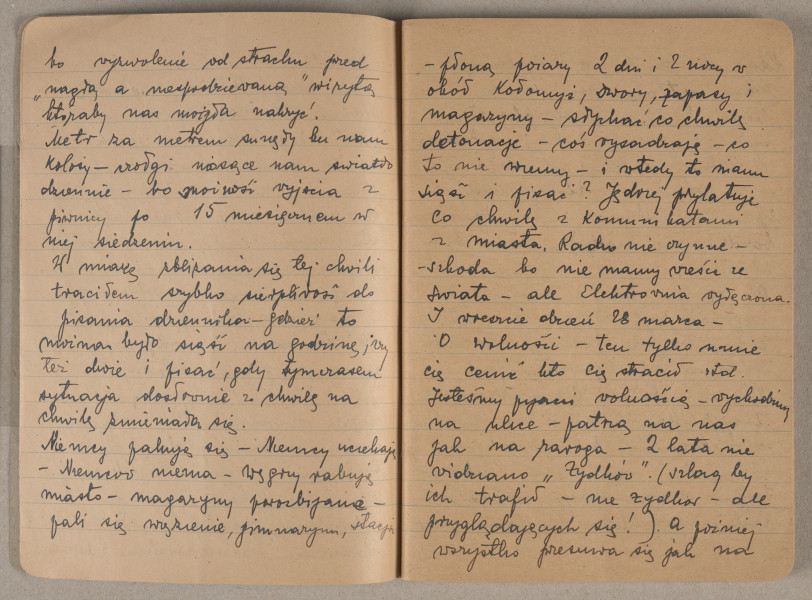 bo wyzwolenie od strachu przed
„nagłą a niespodziewaną" wizytą
któraby nas mogła nakryć.
Metr za metrem sunęły ku nam
kolosy – srodzy niosące nam światło
dzienne – bo możność wyjścia z
piwnicy po 15 miesięcznem w
niej siedzeniu.
W miarę zbliżania się tej chwili
traciłem szybko cierpliwość do
pisania dziennika – gdzież to
można było siąść na godzinę, czy
też dwie i pisać, gdy tymczasem
sytuacja dosłownie z chwilę na
chwilę zmieniała się.
Niemcy pakują się – Niemcy uciekają
– Niemców niema – węgry rabują
miasto – magazyny porozbijane –
pali się więzienie, gimnazyum, stacja
– płoną pożary 2 dni i 2 nocy w
obód Kołomyi, dwory, zapasy i
magazyny – słychać co chwilę
detonacje – coś wysadzają – co
to nie wiemy – i wtedy to mam
siąść i pisać? Jędrzej przylatuje
co chwilę z komunikatami
z miasta. Radio nie czynne –
– szkoda bo nie mamy wieści ze
świata – ale Elektrownia wyłączona.
I wreszcie dzień 28 marca –
O wolności – ten tylko umie
cię cenić kto cię stracił itd.
Jesteśmy pijani wolnością – wychodzimy
na ulice – patrzą na nas
jak na raroga – 2 lata nie
widziano „Żydków". (szlag by
ich trafił – nie żydków – ale
przyglądających się!). A później
wszystko przesuwa się jak na